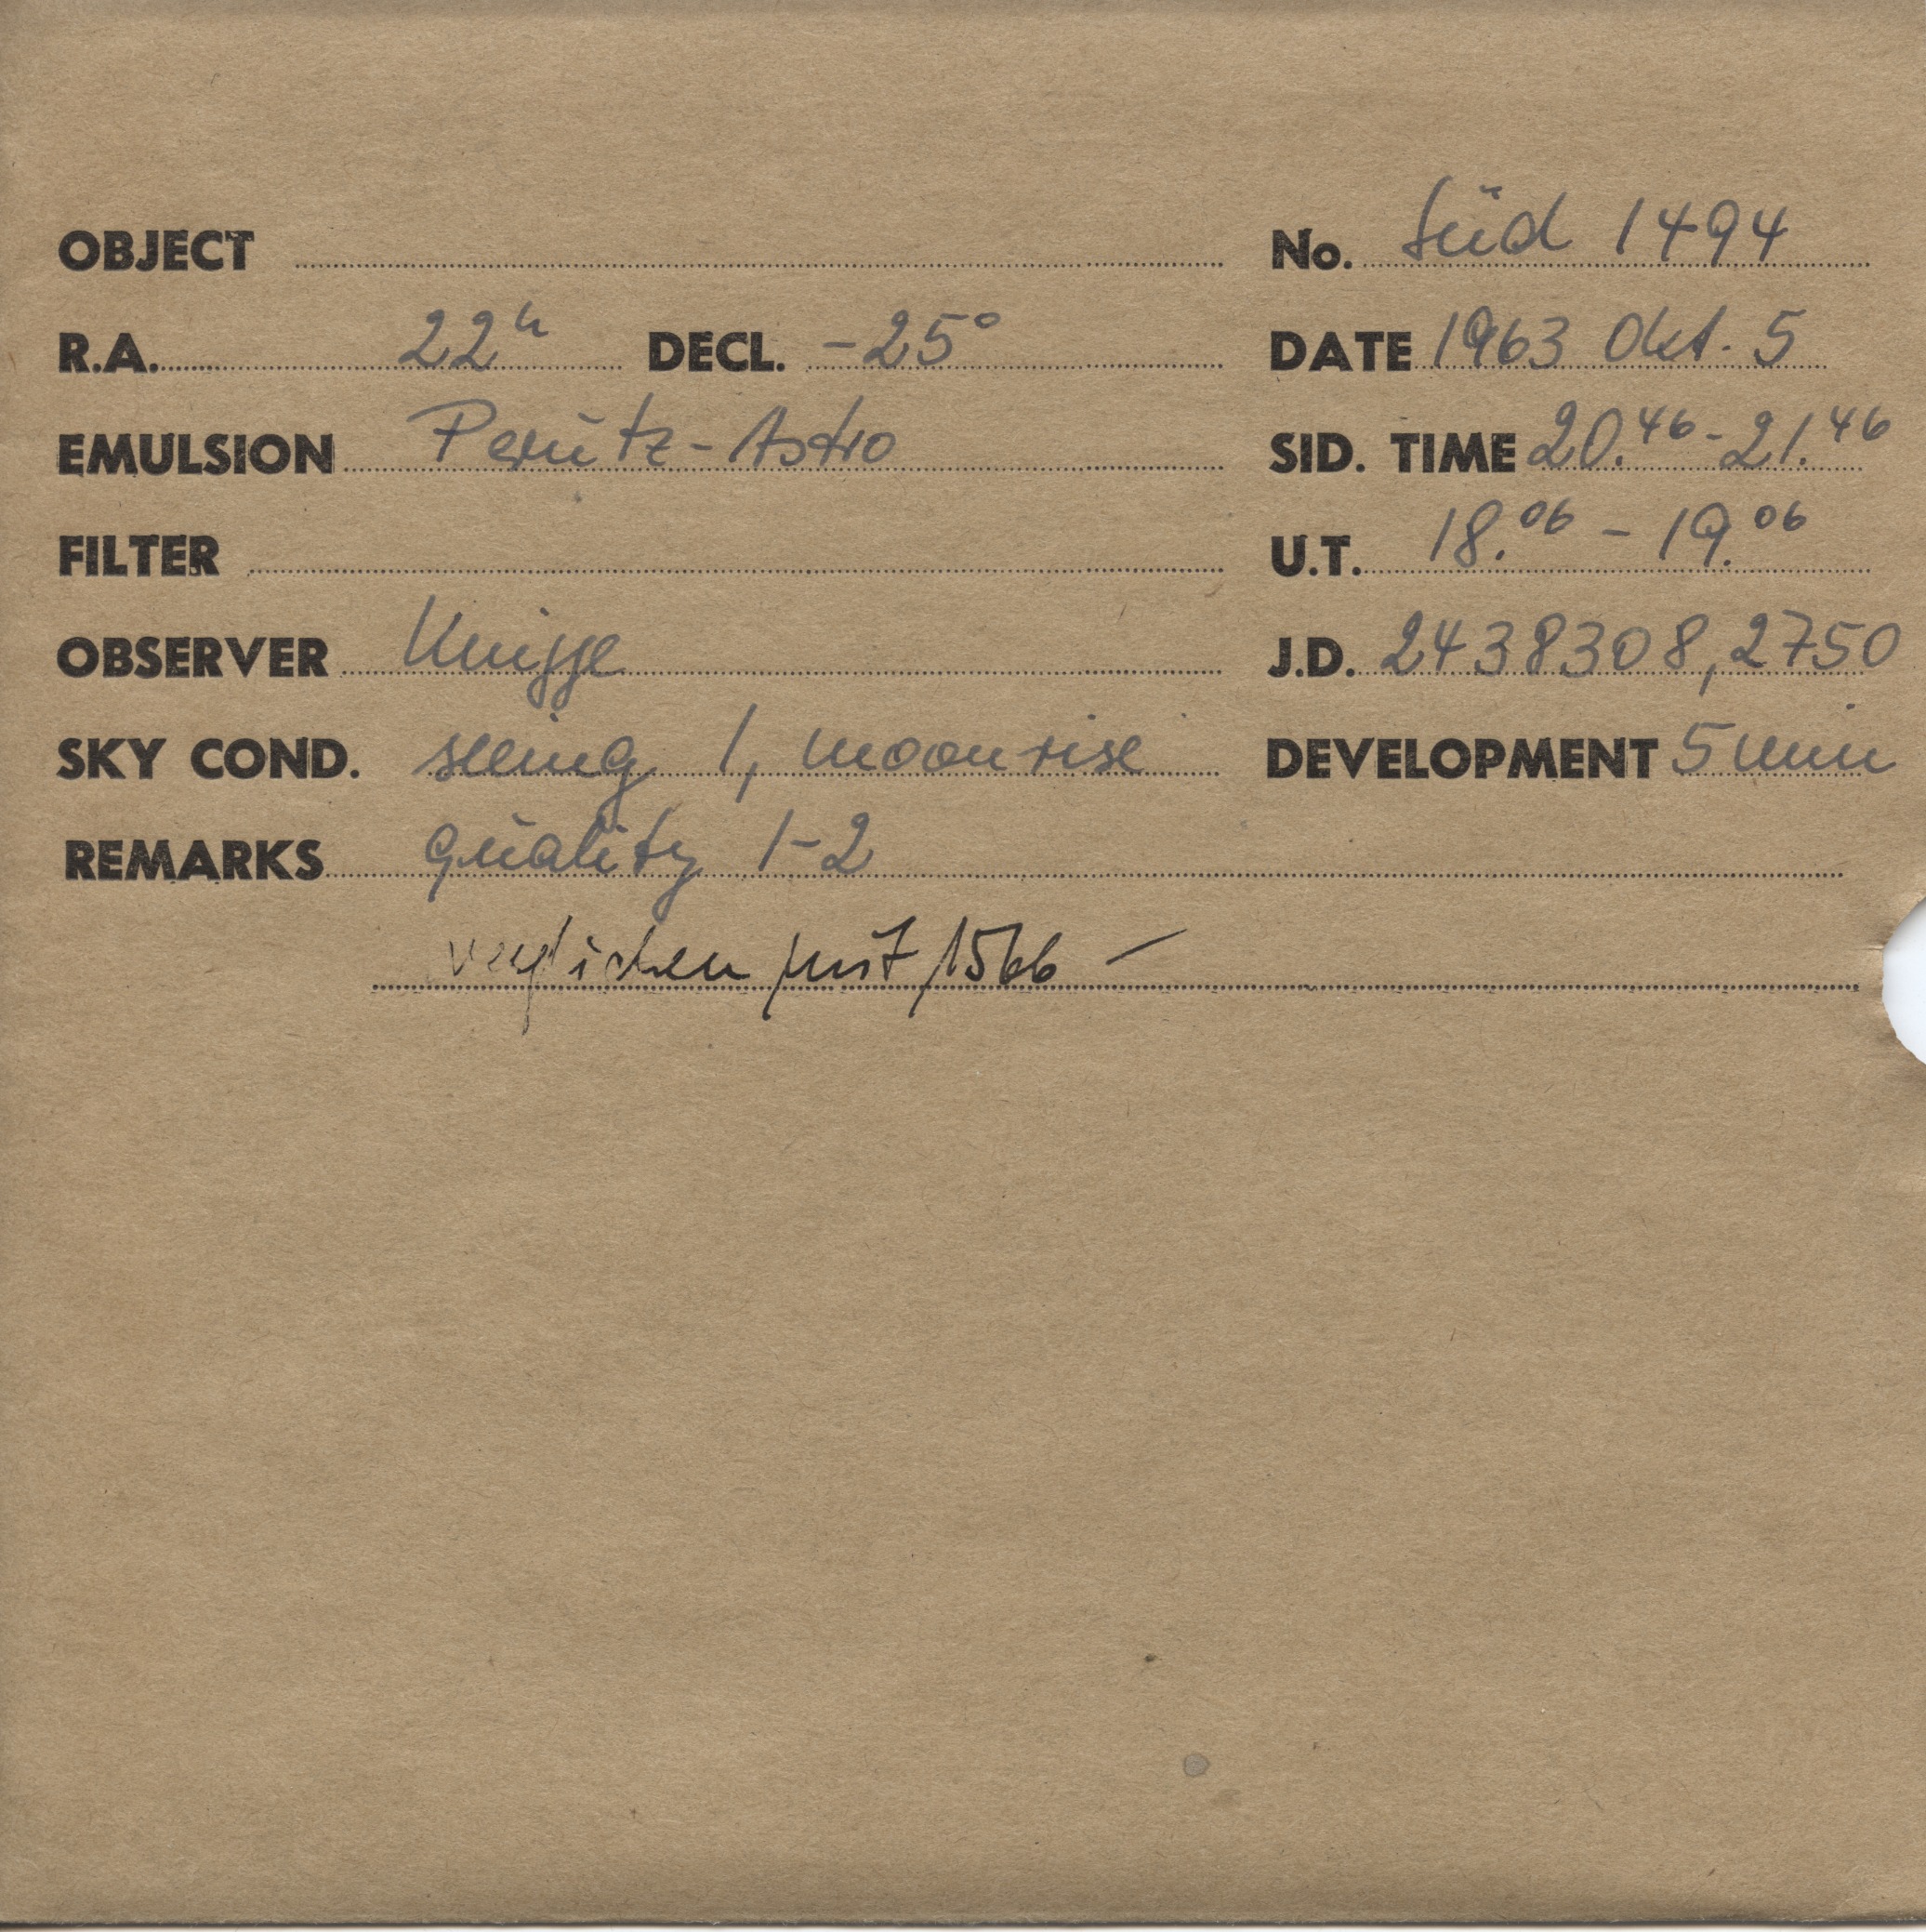 OBJECT No. Süd 1494
R.A. 22h DECL. -25° DATE 1963 Okt. 5
EMULSION Perutz-Astro SID. TIME 20.46-21.46
FILTER U.T. 18.06 - 19.06
OBSERVER Knigge J.D. 2438308,2750
SKY COND. seeing 1, moonrise DEVELOPMENT 5 min
REMARKS quality 1-2
verglichen mit 1566 -